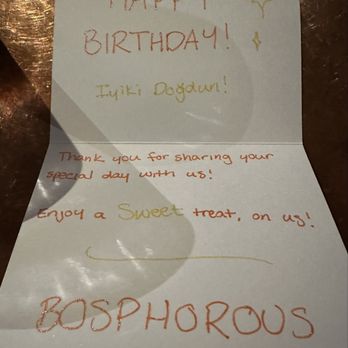 HAPPY
BIRTHDAY!
Iyiki Doğdun!
Thank you for sharing your
special day with us!
Enjoy a Sweet treat, on us!
BOSPHOROUS